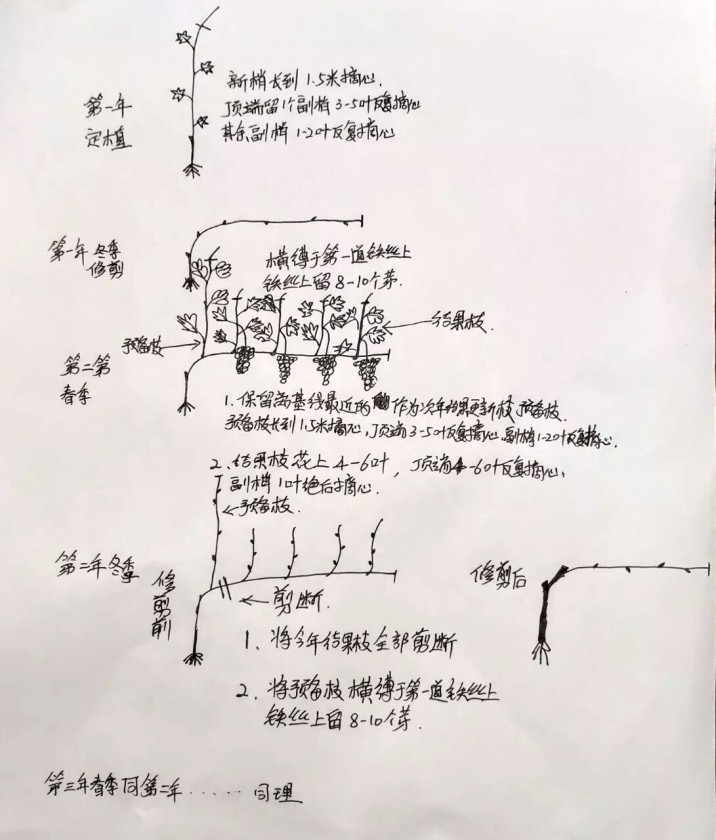 第一年
定植
新梢长到1.5米摘心.
顶端留1个副梢3-5叶反复摘心
其余副梢1-2叶反复摘心
第一年冬季
修剪
横缚于第一道铁丝上
铁丝上留8-10个芽.
预留枝
结果枝.
第二第
春季
1.保留离基线最近的作为次年结果更新枝,预留枝.
预留枝长到1.5米摘心,顶端3-5叶反复摘心,副梢1-2叶反复摘心.
2.结果枝花上4-6叶,顶端4-6叶反复摘心,
副梢1叶绝后摘心.
预留枝.
第二年冬季
修剪前
剪断.
修剪后
1、将今年结果枝全部剪断
2、将预留枝横缚于第一道铁丝上
铁丝上留8-10个芽.
第三年春季同第二年......同理